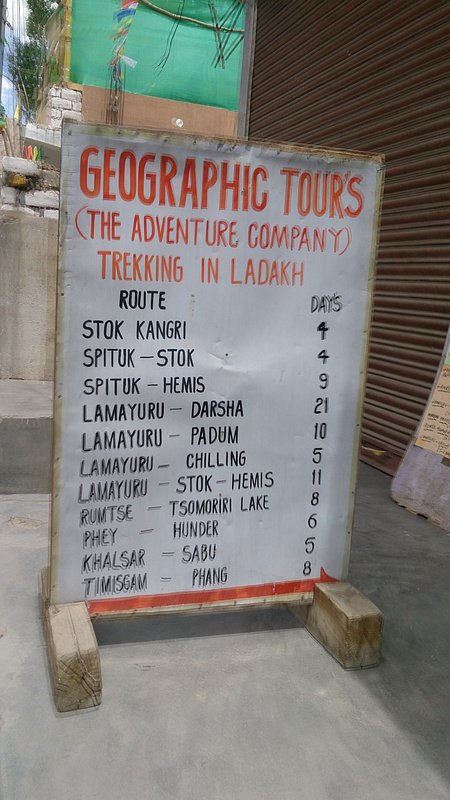 GEOGRAPHIC TOUR'S
(THE ADVENTURE COMPANY)
TREKKING IN LADAKH
ROUTE DAY'S
STOK KANGRI 4
SPITUK — STOK 4
SPITUK — HEMIS 9
LAMAYURU — DARSHA 21
LAMAYURU — PADUM 10
LAMAYURU — CHILLING 5
LAMAYURU — STOK — HEMIS 11
RUMTSE — TSOMORIRI LAKE 8
PHEY — HUNDER 6
KHALSAR — SABU 5
TIMISGAM — PHANG 8